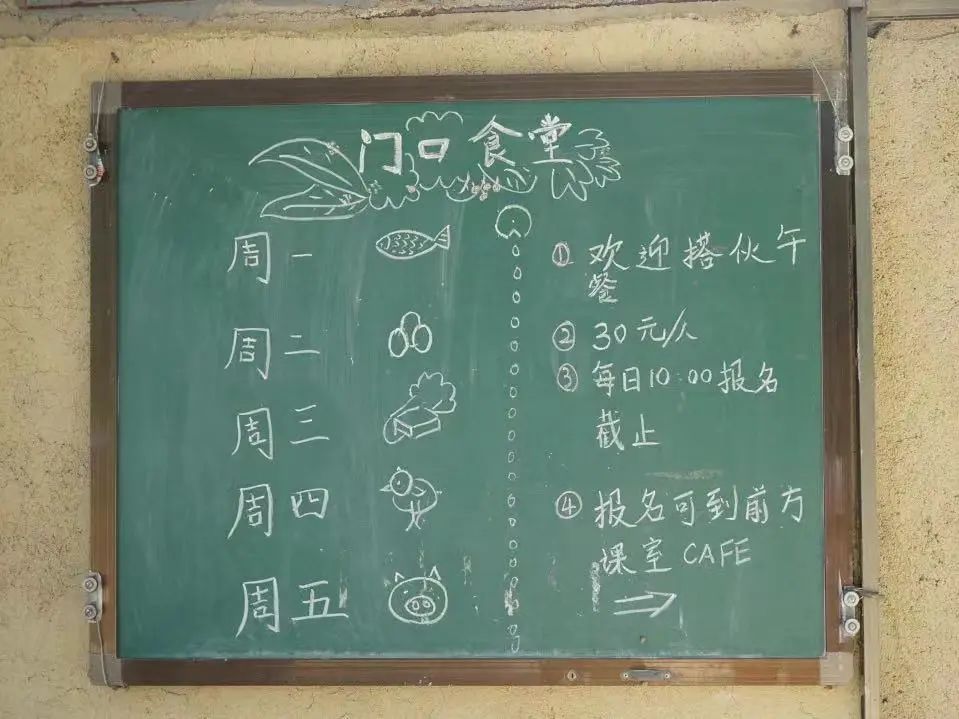 门口食堂
周一
周二
周三
周四
周五
① 欢迎搭伙午
餐
② 30元/人
③ 每日10:00报名
截止
④ 报名可到前方
课室 CAFE